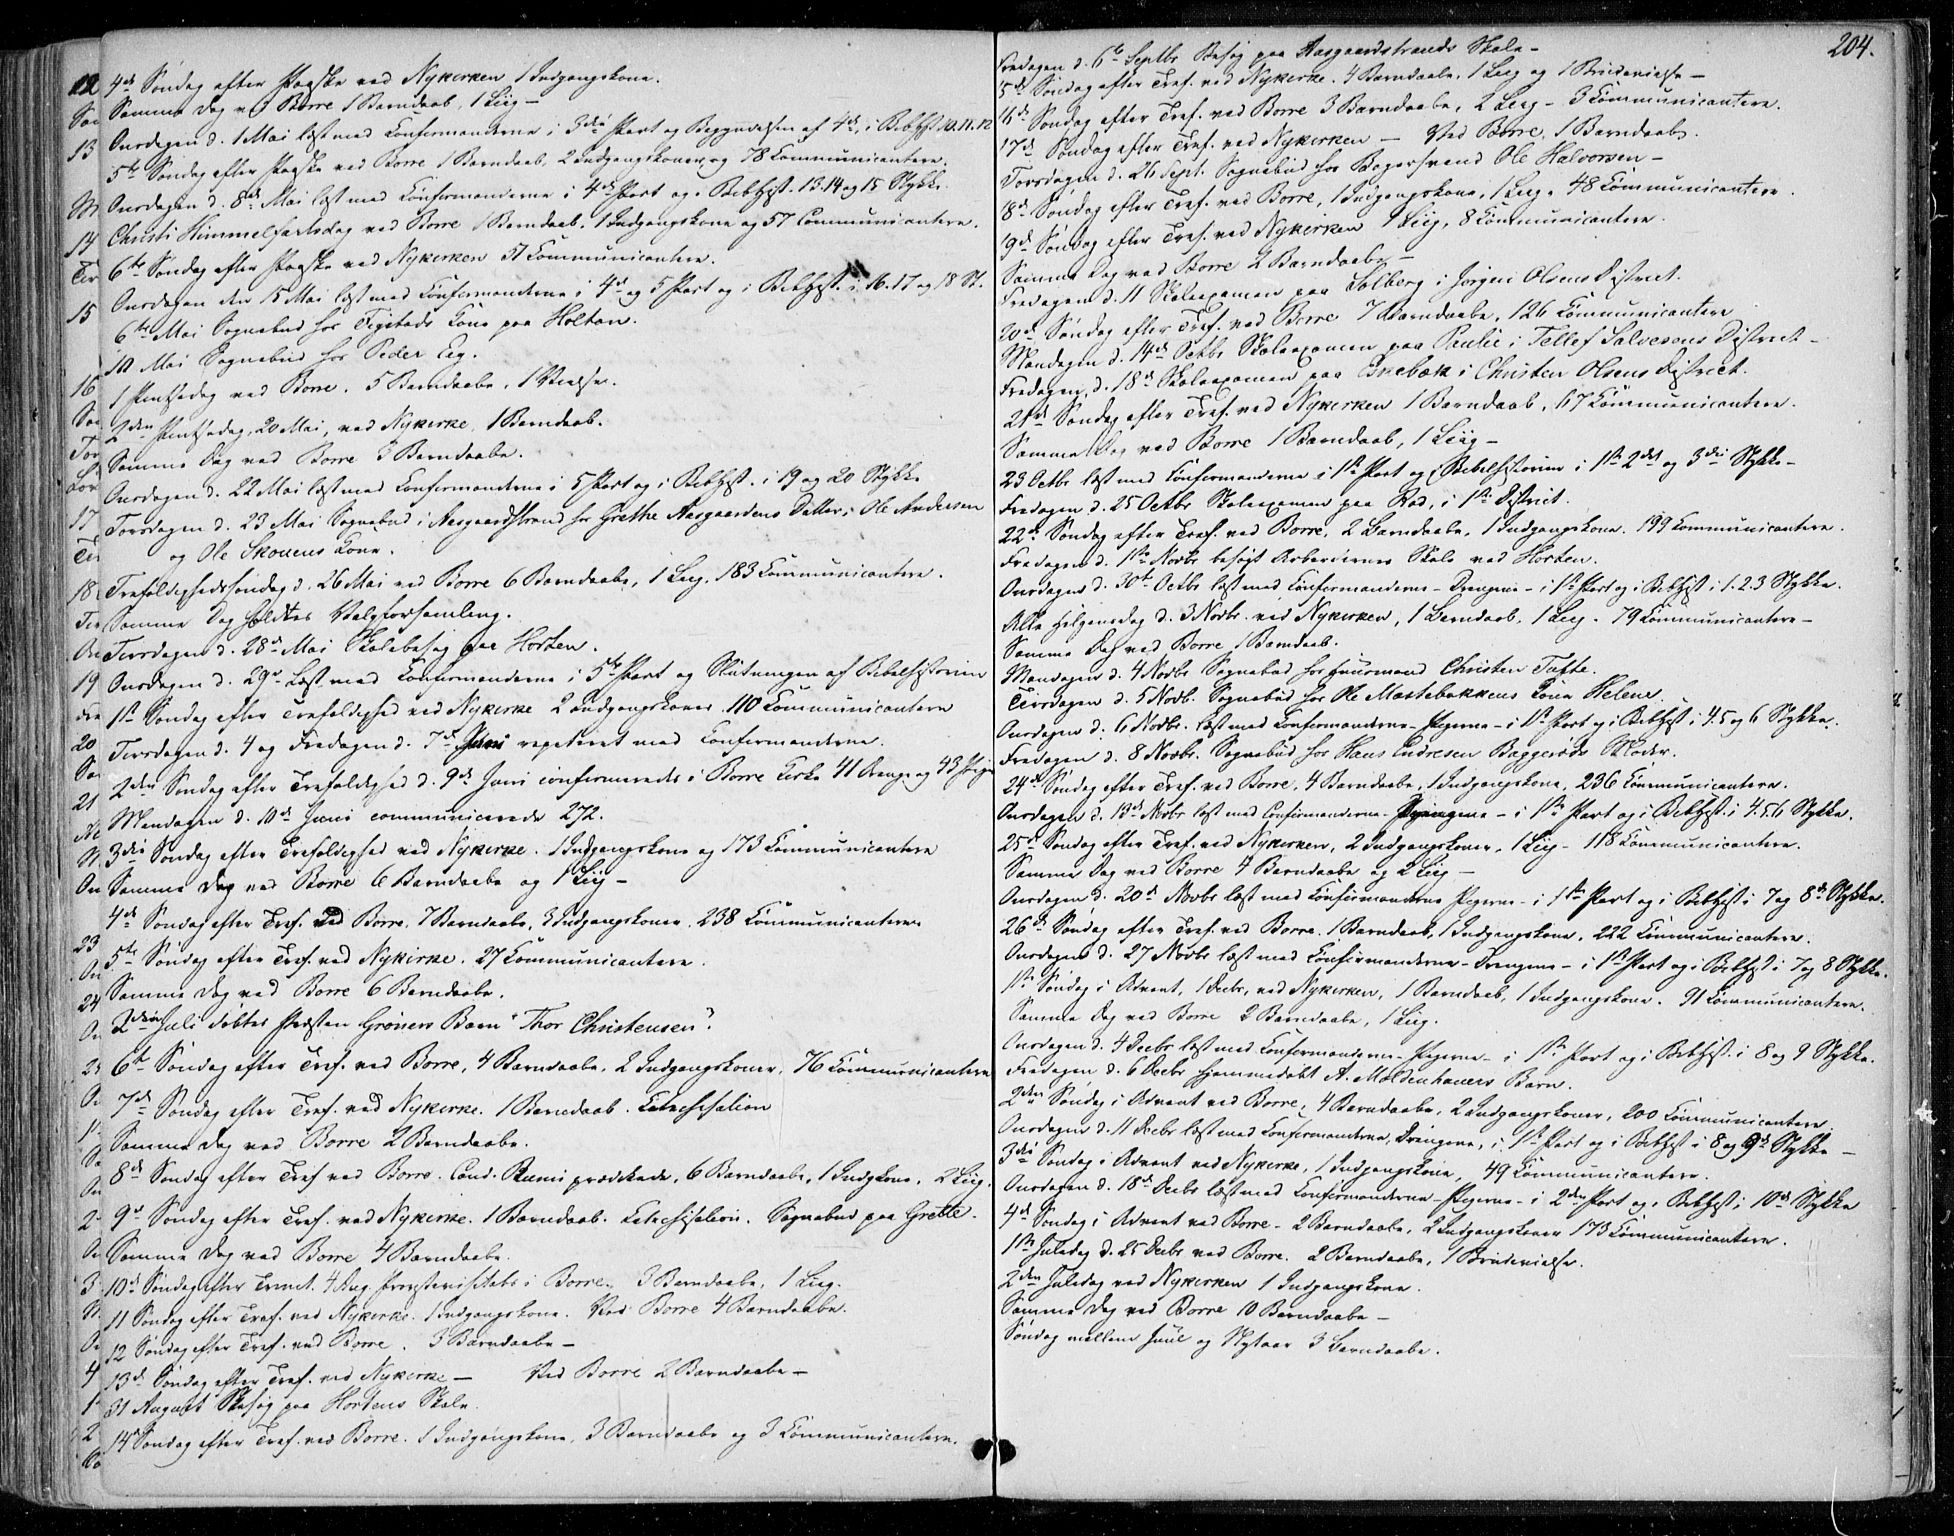 4de Søndag efter Paaske ved Nykirken 1 Indgangskone.
Samme Dag ved Borre 1 Barndaab, 1 Liig —
Onsdagen d. 1 Mai læst med Confirmanderne i 3die Part og Begyndelsen af 4de, i BiblHist 10.11.12
5te Søndag efter Paaske ved Borre 1 Barndaab. 2 Indgangskoner og 78 Communicantere.
Onsdagen d. 8de Mai læst med Confirmanderne i 4de Part og BiblHist. 13. 14 og 15 Stykke.
Christi Himmelfartsdag ved Borre 1 Barndaab, 1 Indgangskone og 57 Communicantere.
6te Søndag efter Paaske ved Nykirken 51 Communicantere.
Onsdagen den 15 Mai læst med Confirmanderne i 4de og 5 Part og i BiblHist. i 16. 17 og 18 St.
6te Mai Sognebud hos Tigstads Kone paa Holtan.
10 Mai Sognebud hos Peder Eeg.
1 Pintsedag ved Borre. 5 Barndaabe, 1 Vielse.
2den Pintsedag, 20 Mai, ved Nykirke, 1 Barndaab.
Samme Dag ved Borre 3 Barndaabe.
Onsdagen d. 22 Mai læst med Confirmanderne i 5 Part og i BiblHist. i 19 og 20 Stykke
Torsdagen d. 23 Mai Sognebud i Aasgaardstrand hos Grethe Aasgaardens Datter, Ole Andersen
og Ole Skouens Kone.
Trefoldighedssøndag d. 26 Mai ved Borre 6 Barndaabe, 1 Liig. 183 Communicantere.
Samme Dag holdtes Valgforsamling.
Tirsdagen d. 28de Mai Skolebesøg paa Horten.
Onsdagen d. 29de Læst med Confirmanderne i 5te Part og Slutningen af Bibelhistorien
1ste Søndag efter Trefoldighed ved Nykirke 2 Indgangskoner 110 Communicantere
Tirsdagen d. 4 og Fredagen d. 7de Juni repeteret med Confirmanderne.
2den Søndag efter Trefoldighed d. 9de Juni confirmeredes i Borre Kirke 41 Drenge og 43 Piger
Mandagen d. 10de Juni communicerede 272.
3die Søndag efter Trefoldighed ved Nykirke. 1 Indgangskone og 173 Communicantere
Samme Dag ved Borre 6 Barndaabe og 1 Liig —
4de Søndag efter Tref. ved Borre. 7 Barndaabe, 3 Indgangskoner. 238 Communicantere
5te Søndag efter Tref. ved Nykirke. 27 Communicantere.
Samme Dag ved Borre 6 Barndaabe.
2den Juli døbtes Præsten Grøners Barn "Thor Christensen".
6te Søndag efter Tref. ved Borre, 4 Barndaabe, 2 Indgangskoner, 76 Communicantere
7de Søndag efter Tref. ved Nykirke. 1 Barndaab. Catechisation
Samme Dag ved Borre 2 Barndaabe.
8de Søndag efter Tref ved Borre. Cand. prædikede, 6 Barndaabe, 1 Indgkone, 2 Liig.
9de Søndag efter Tref. ved Nykirke. 1 Barndaab. Catechisation. Sognebud paa Grette.
Samme Dag ved Borre 4 Barndaabe.
10de Søndag efter Trinit. 4 Aug Provstevisitats i Borre. 3 Barndaabe, 1 Liig.
11 Søndag efter Tref. ved Nykirke. 1 Indgangskone. Ved Borre 4 Barndaabe.
12 Søndag efter Tref. ved Borre. 3 Barndaabe —
13de Søndag efter Tref. ved Nykirke — Ved Borre 2 Barndaabe —
31 August Besøg paa Hortens Skole.
14de Søndag efter Tref. ved Borre. 1 Indgangskone, 3 Barndaabe og 3 Communicantere.
204.
Fredagen d. 6te Septbr Besøg paa Aasgaardstrands Skole —
5de Søndag efter Tref. ved Nykirke. 4 Barndaabe, 1 Liig og 1 Brudevielse —
16de Søndag efter Tref. ved Borre 3 Barndaabe, 2 Liig — 3 Communicantere.
17de Søndag efter Tref. ved Nykirken — Ved Borre, 1 Barndaab.
Torsdagen d. 26 Sept. Sognebud hos Bagersvend Ole Halvorsen —
18de Søndag efter Tref. ved Borre, 1 Indgangskone, 1 Liig. 48 Communicantere.
19de Søndag efter Tref. ved Nykirken 1 Liig, 8 Communicantere.
Samme Dag ved Borre 2 Barndaabe —
Fredagen d. 11 Skoleexamen paa Solberg i Jørgen Olsens District.
20de Søndag efter Tref. ved Borre 7 Barndaabe, 126 Communicantere
Mandagen d. 14de Octbr Skoleexamen paa Paulie i Tellef Salvesens District —
Fredagen, d. 18de Skoleexamen paa i Christen Olsens District.
21de Søndag efter Tref. ved Nykirken 1 Barndaab, 67 Communicantere.
Samme Dag ved Borre 1 Barndaab, 1 Liig —
23 Octbr læst med Confirmanderne i 1ste Part og i Bibelhistorien i 1ste 2det og 3die Stykke —
Fredagen d. 25 Octbr Skoleexamen paa Rød, i 1ste District.
22de Søndag efter Tref. ved Borre, 2 Barndaabe, 1 Indgangskone. 199 Communicantere.
Fredagen d. 1ste Novbr besøgt Arbeidernes Skole ved Horten.
Onsdagen d. 30te Octbr læst med Confirmanderne — Drengene — i 1ste Part og i BiblHist i 1. 2. 3 Stykke.
Alle Helgensdag d. 3 Novbr. ved Nykirken, 1 Barndaab, 1 Liig. 79 Communicantere —
Samme Dag ved Borre 1 Barndaab.
Mandagen d. 4 Novbr Sognebud hos Huusmand Christen Tufte.
Tirsdagen d. 5 Novbr. Sognebud hos Ole Mastebakkens Kone Helene.
Onsdagen d. 6 Novbr. læst med Confirmanderne — Pigerne — i 1ste Part og i BiblHist i 4. 5 og 6 Stykke.
Fredagen d. 8 Novbr. Sognebud hos Hans Endresen Baggerøds Moder.
24de Søndag efter Tref. ved Borre, 4 Barndaabe, 1 Indgangskone, 236 Communicantere.
Onsdagen d. 13de Novbr læst med Confirmanderne — Drengene — i 1ste Part og i BiblHist i 4. 5. 6 Stykke.
25de Søndag efter Tref. ved Nykirken, 2 Indgangskoner, 1 Liig — 118 Communicantere.
Samme Dag ved Borre 4 Barndaabe og 2 Liig —
Onsdagen d. 20de Novbr læst med Confirmanderne Pigerne — i 1ste Part og i BiblHist i 7 og 8de Stykke.
26de Søndag efter Tref. ved Borre. 1 Barndaab, 1 Indgangskone, 222 Communicantere.
Onsdagen d. 27 Novbr læst med Confirmanderne — Drengene — i 1ste Part og i BiblHist i 7 og 8 Stykke.
1ste Søndag i Advent, 1 Decbr, ved Nykirken, 1 Barndaab, 1 Indgangskone. 91 Communicantere.
Samme Dag ved Borre 2 Barndaabe, 1 Liig.
Onsdagen d. 4 Decbr læst med Confirmanderne — Pigerne — i 1ste Part og i BiblHist. i 8 og 9 Stykke.
Fredagen d. 6 Decbr hjemmedøbt A. Moldenhauers Barn.
2den Søndag i Advent ved Borre, 4 Barndaabe, 2 Indgangskoner, 200 Communicantere.
Onsdagen d. 11 Decbr læst med Confirmanderne, Drengene, i 1ste Part og i BiblHist i 8 og 9de Stykke —
3die Søndag i Advent ved Nykirke, 1 Indgangskone, 49 Communicantere.
Onsdagen d. 18de Decbr læst med Confirmanderne — Pigerne — i 2den Part og i BiblHist i 10de Stykke
4de Søndag i Advent ved Borre — 2 Barndaabe, 2 Indgangskoner 173 Communicantere.
1ste Juledag d. 25 Decbr ved Borre. 2 Barndaabe, 1 Brudevielse.
2den Juledag ved Nykirken 1 Indgangskone.
Samme Dag ved Borre 10 Barndaabe —
Søndag mellem Juul og Nytaar 3 Barndaabe.